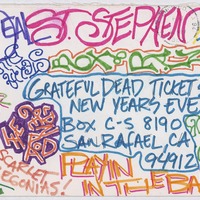 ST. STEPHEN
BOX OF R
GRATEFUL DEAD TICKETS
NEW YEARS EVE
BOX C-S 8190
SAN RAFAEL, CA
94912
THE GOLDEN ROAD
SCARLET
BEGONIAS!
PLAYIN
IN THE BA